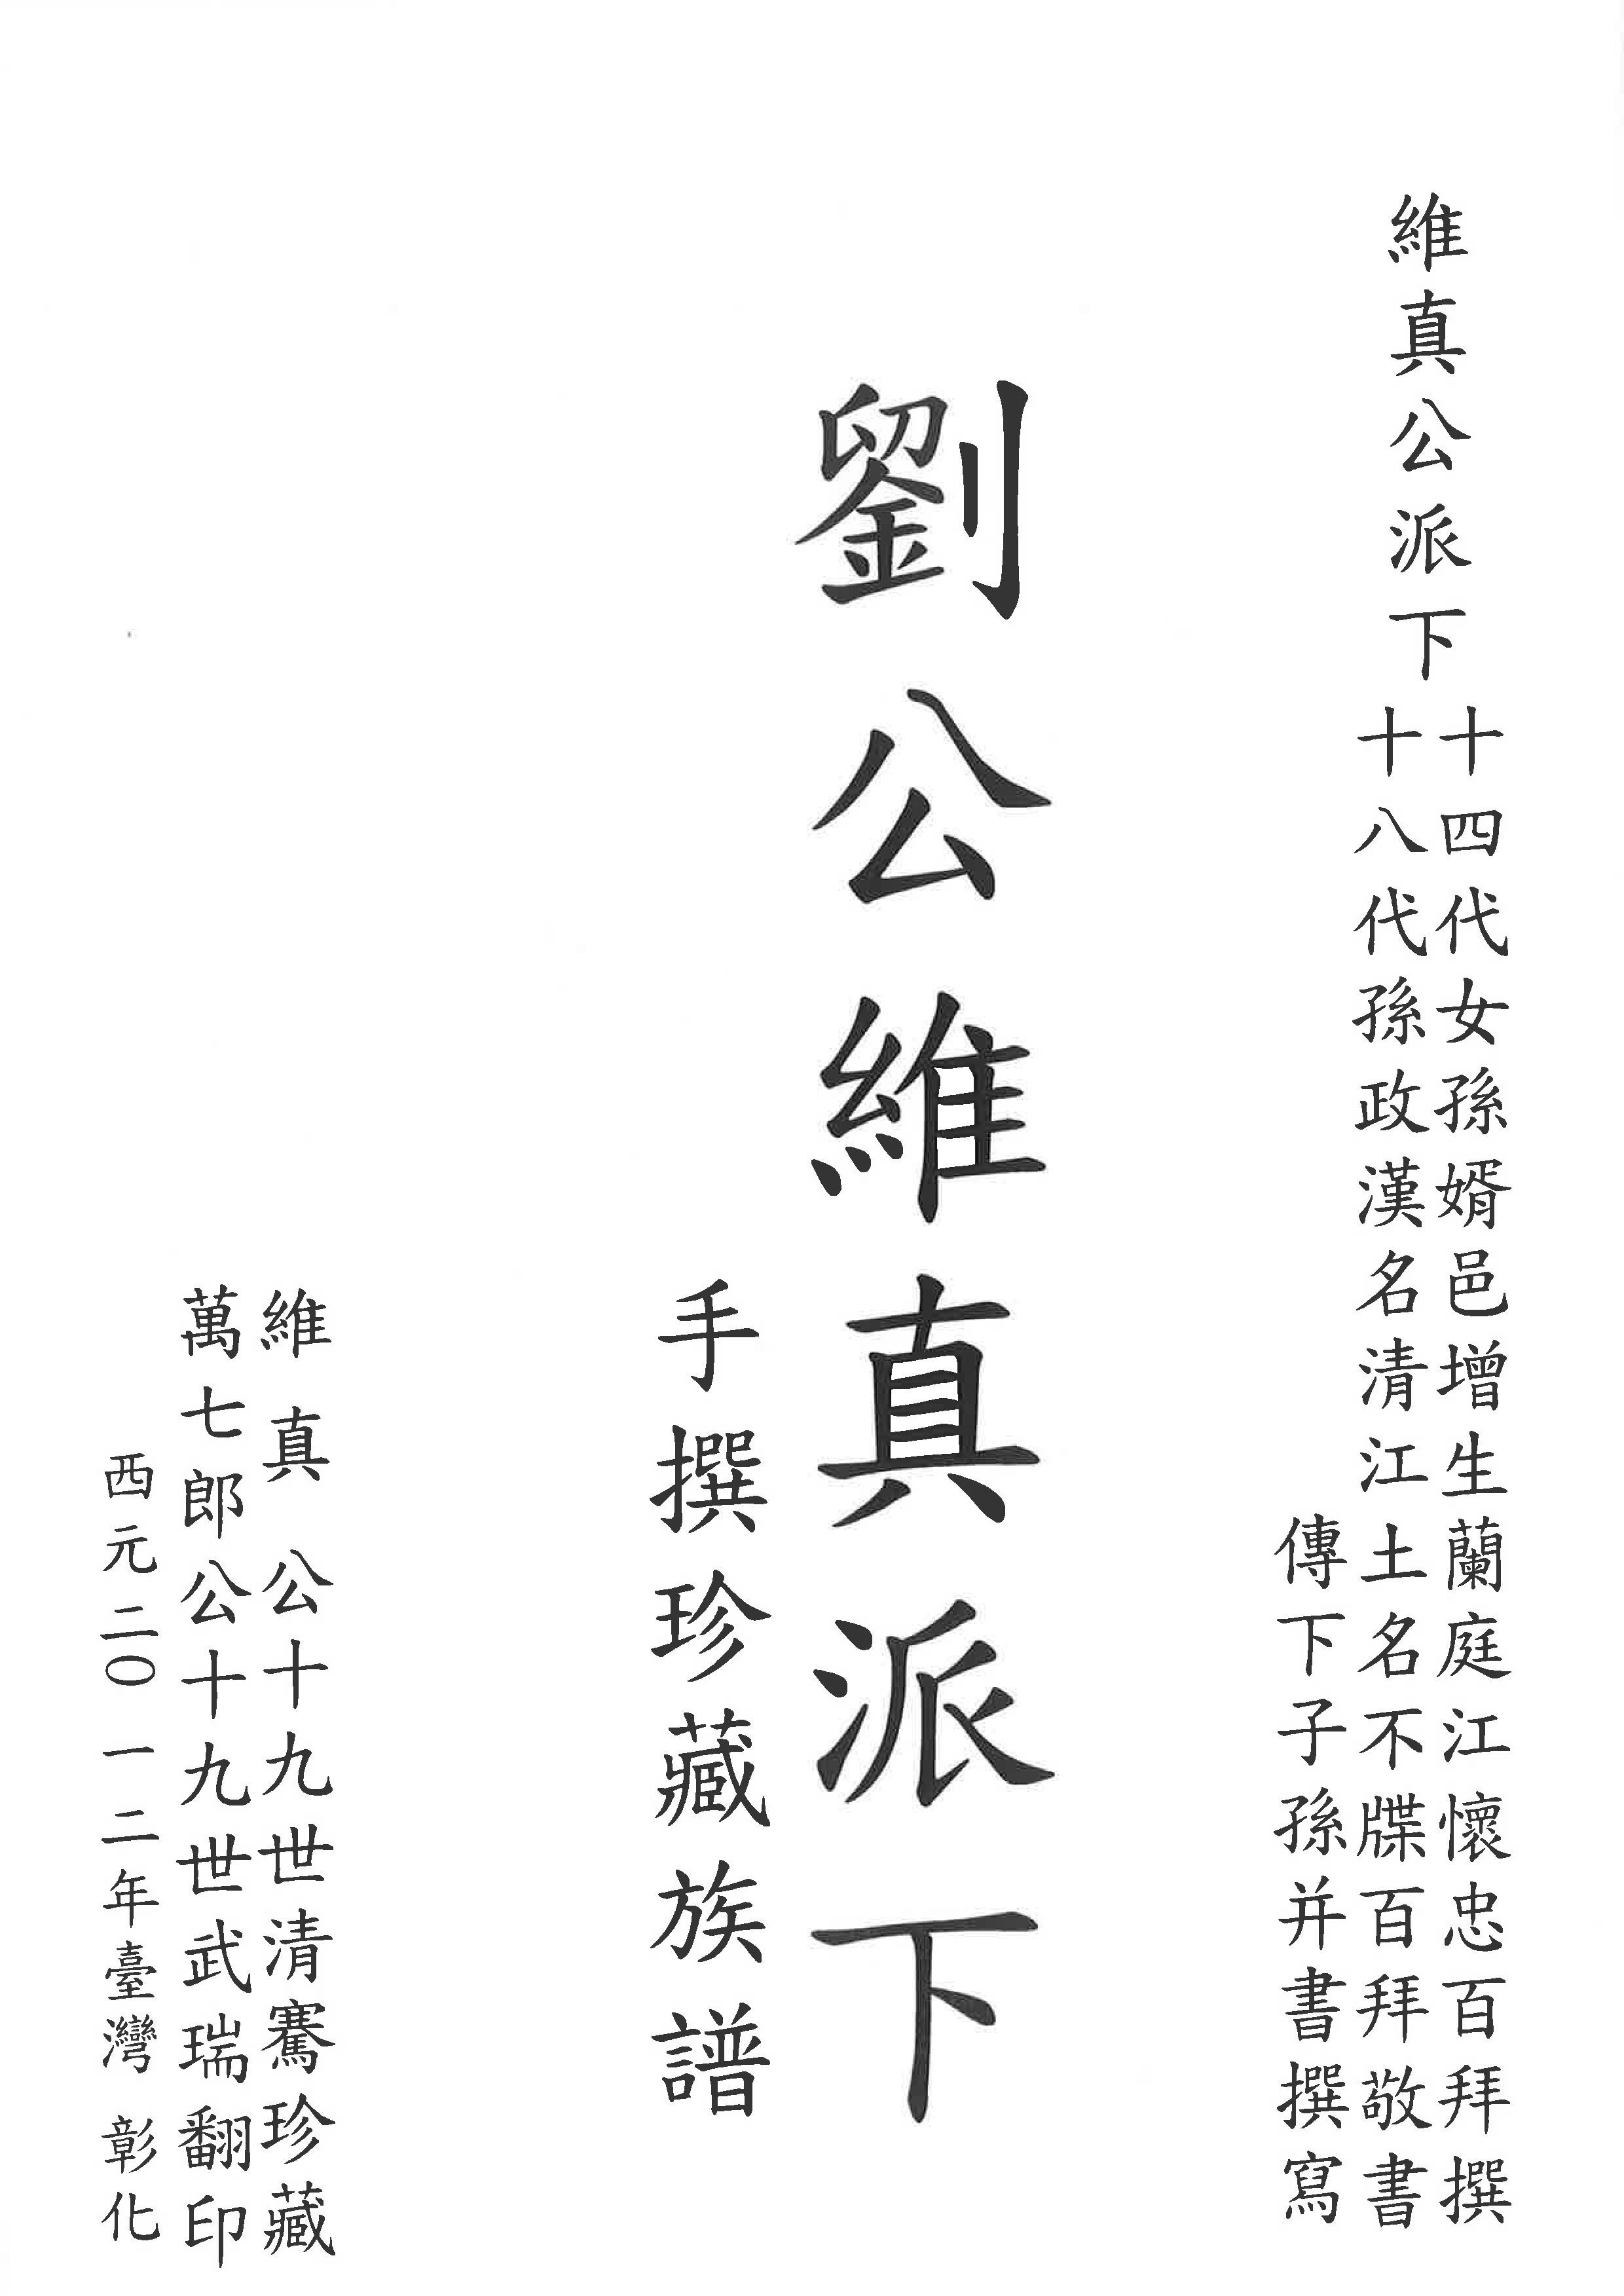 維真公派下
十四代女孫婿邑增生蘭庭江懷忠百拜撰
十八代孫政漢名清江土名不牒百拜敬書
傳下子孫并書撰寫
劉公維真派下
手撰珍藏族譜
維真公十九世清騫珍藏
萬七郎公十九世武瑞翻印
西元二〇一二年臺灣彰化